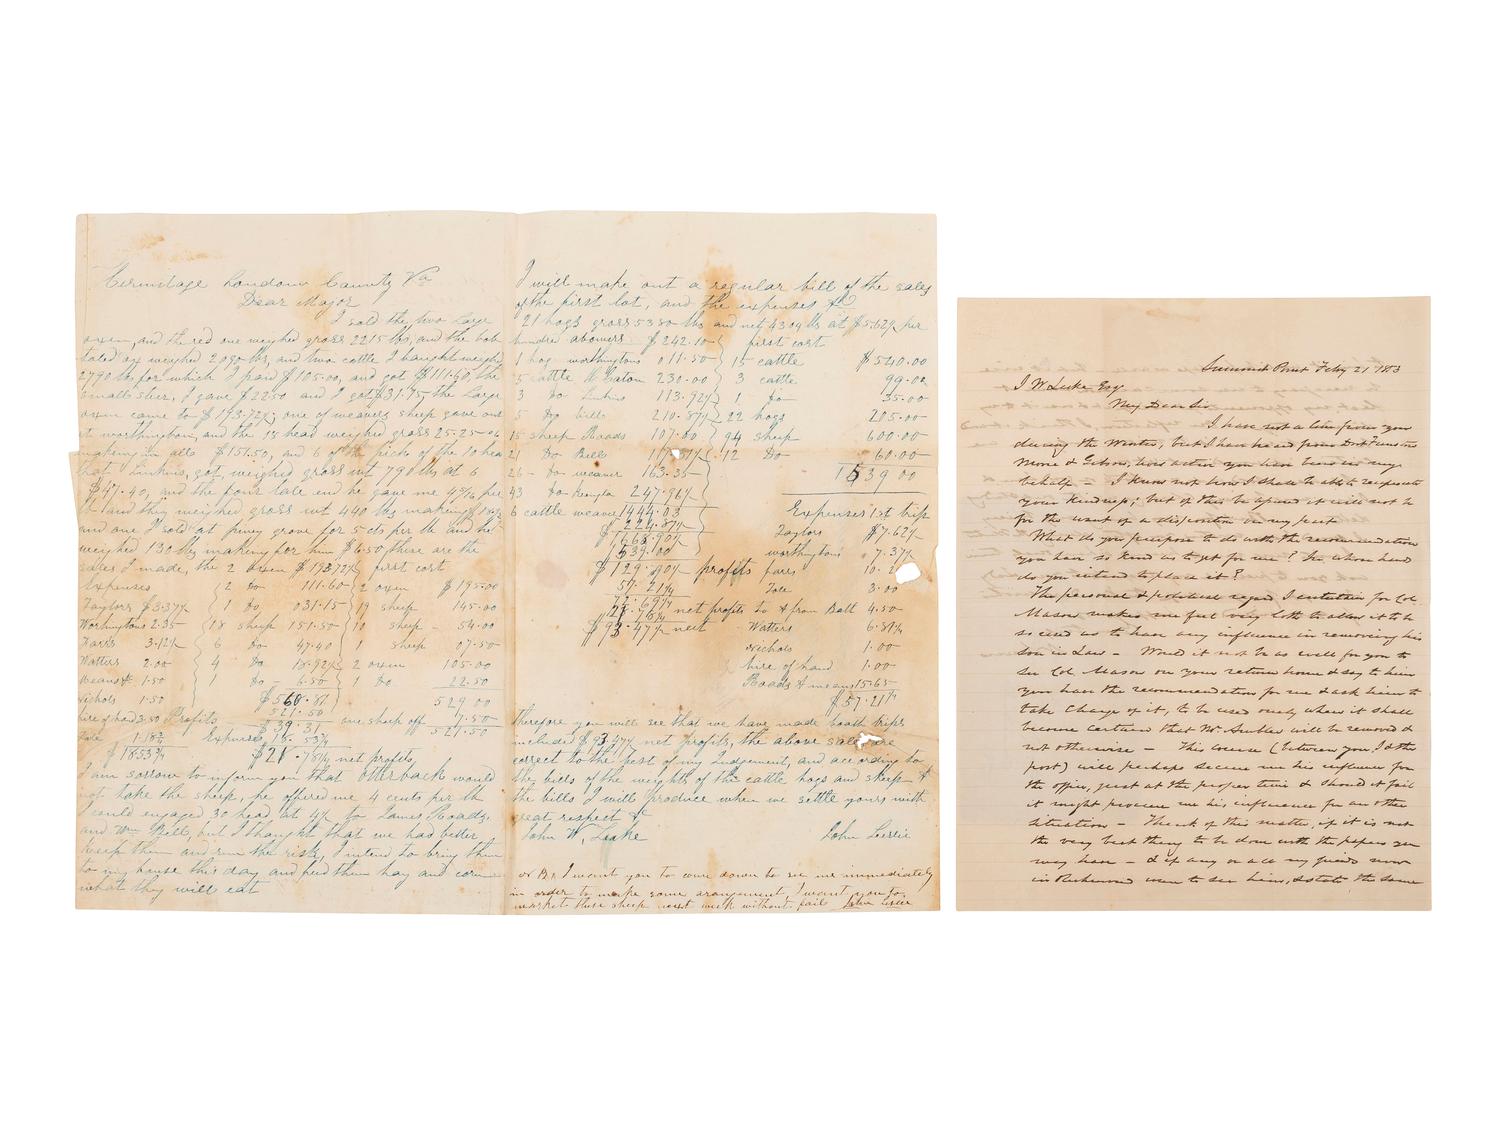 Hermitage Loudoun County Va
Dear Major
I sold the two large
oxen, and the red one weighed gross 2215 lbs, and the bob
tailed ox weighed 2090 lbs, and two cattle I bought weighed
2790 lbs for which I paid $105.00, and got $111.60, the
small steer, I gave $22.50 and I got $31.75 the large
oxen came to $193.72½ one of weavers sheep gave out
at worthington, and the 18 head weighed gross 25.25
making in all $151.50, and 6 of the pick of the 10 head
that Linkins, got weighed gross wt 790 lbs at 6
$47.40, and the four late end he gave me per
lb and they weighed gross wt 440 lbs making $
and one I sold at piney grove for 5 cts per lb and he
weighed 130 lbs making for him $6.50, these are the
sales I made, the 2 oxen $193.72½ first cost
Expenses 2 Do 111.60 2 oxen $195.00
Taylors $3.37½ 1 Do 031.15 19 sheep 145.00
Worthingtons 2.35 18 sheep 151.50 10 sheep 54.00
Farrs 3.12½ 6 Do 47.40 1 sheep 07.50
Watters 2.00 4 Do 18.92½ 2 oxen 105.00
Means & 1.50 1 Do 6.50 1 Do 22.50
Nichols 1.50 $560.87½ 529.00
hire of hand 3.50 Profits 521.50 one sheep off 7.50
Tole 1.18¾ $39.31 521.50
Expenses 18.53¾
$18.53¾ $21.78¼ net profits,
I am sorrow to inform you that Otterback would
not take the sheep, he offered me 4 cents per lb
I could engaged 30 head at 4½ to James Roads,
and Wm Bell, but I thought that we had better
keep them and run the risk, I intend to bring them
to my house this day and feed them hay and corn
what they will eat
I will make out a regular bill of the sales
of the first lot, and the expenses &c
21 hogs gross 5380 lbs and net 4309 lbs at $5.62½ per
hundred abowers $242.10 first cost
1 hog worthingtons 011.50 15 cattle $540.00
5 cattle W Eaton 230.00 3 cattle 99.00
3 Do Linkins 113.92½ 1 Do 35.00
5 Do bills 210.87½ 22 hogs 205.00
15 sheep Roads 107.00 94 sheep 600.00
21 Do Bells 12 Do 60.00
26 Do weaver 163.35 1539 00
43 Do 247.96½
6 cattle weaver 1444.03 Expenses 1st trip
224.87½ Taylors $7.62½
$1668.90½ worthingtons 7.37½
1539.00 farrs 10.2
$129.90½ profits Tole 3.00
57.21¼ to & from Balt 4.50
72.69¼ net profits Watters 6.87½
Nichols 1.00
$93.47½ nett hire of hand 1.00
Roads & means 15.65
$57.21¼
therefore you will see that we have made booth trips
included $93.47½ net profits, the above sales are
correct to the best of my Judgement, and according to
the bills of the weights of the cattle hogs and sheep &
the bills I will produce when we settle yours with
great respect &c
John W. Leake John Leslie
I want you to come down to see me immediately
in order to make some arangement I want you to
market these sheep next week without fail John Leslie
Summit Point Feby 21 1853
J W Luke Esq
My Dear Sir
I have not a line from you
during the Winter, but I have heard from Doct
Moore & Gibson, how active you have been in my
behalf – I know not how I shall be able to reciprocate
your kindness; but if this be apured it will not be
for the want of a disposition on my part
What do you purpose to do with the recommendation
you have so kind as to get for me? In whose hand
do you intend to place it?
The personal & political regard I entertain for Col
Mason makes me feel very loth to allow it to be
so used as to have any influence in removing his
son in Law – Would it not be as well for you to
see Col Mason on your return home & say to him
you have the recommendation for me & ask him to
take charge of it, to be used only when it shall
become certain that Mr will be removed &
not otherwise – This course (between you, I & the
post) will perhaps secure me his influence for
the office, just at the proper time & should it fail
it might procure me his influence for an other
situation – Think of this matter, if it is not
the very best thing to be done with the papers you
may have – & if any or all my friends now
in Richmond were to see him, & state the same